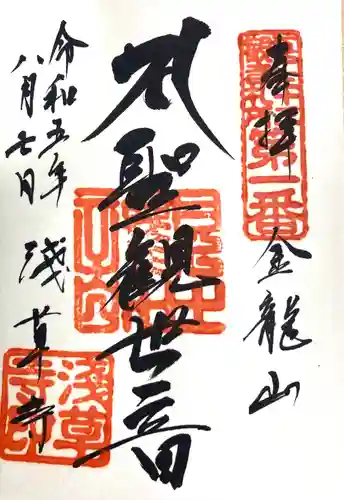 奉拝
金龍山
聖観世音
令和五年
八月七日
浅草寺
第一番
浅草寺